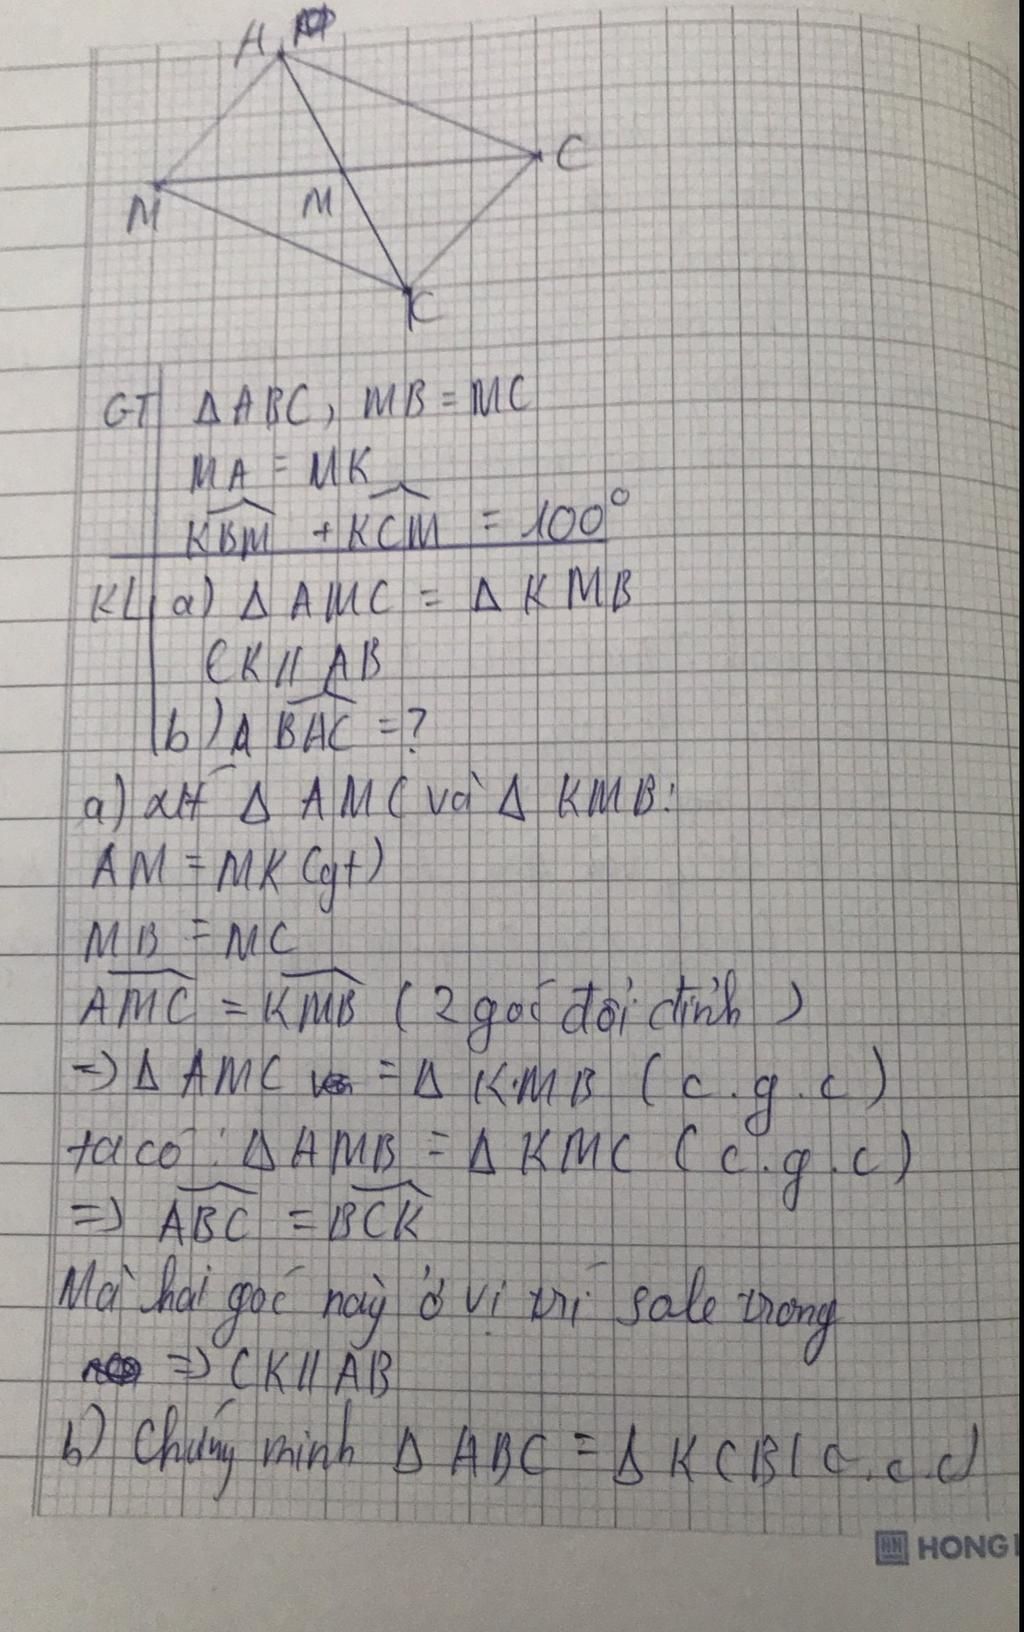 A
C
M
M
K
GT ΔABC, MB = MC
MA = MK
KBM + KCM = 100°
KL a) Δ AMC = Δ KMB
CK // AB
b) BAC = ?
a) Δ AMC và Δ KMB:
AM = MK (gt)
MB = MC
AMC = KMB (2 góc đối đỉnh)
=> Δ AMC = Δ KMB (c.g.c)
ta có: Δ AMB = Δ KMC (c.g.c)
=> ABC = BCK
Mà hai góc này ở vị trí sole trong
=> CK // AB
b) Chứng minh Δ ABC = Δ KCB (c.c.c)
HONG